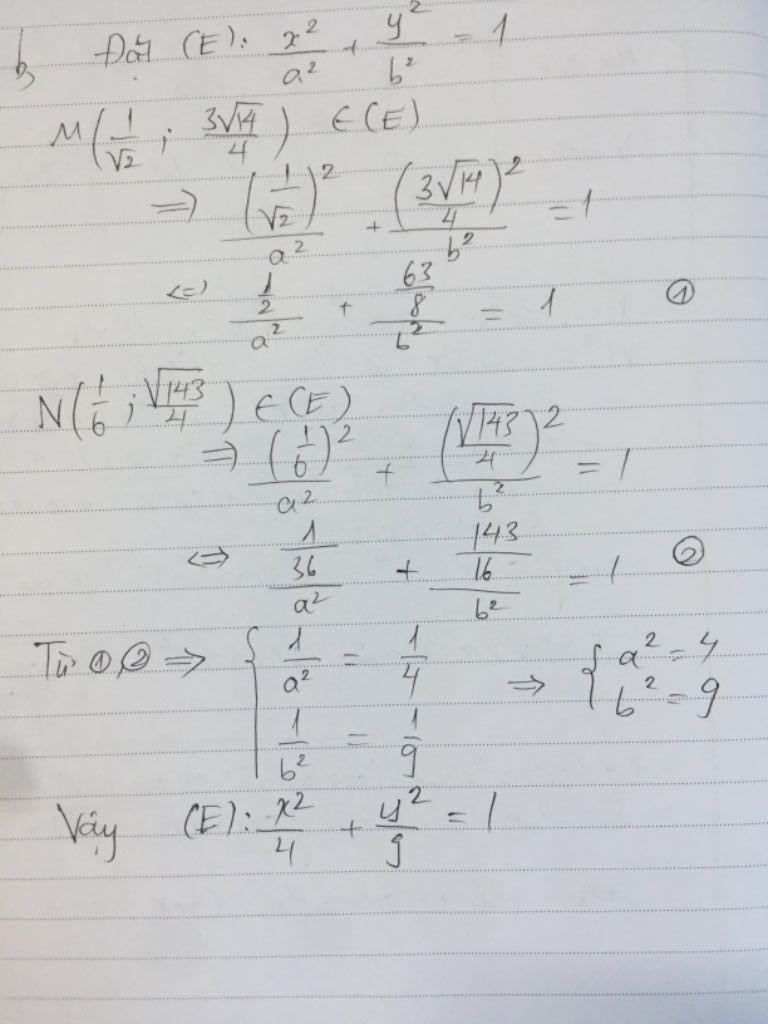 b, Đặt (E): x²/a² + y²/b² = 1
M(1/√2 ; 3√14/4) ∈ (E)
⇒ (1/√2)²/a² + (3√14/4)²/b² = 1
⇔ (1/2)/a² + (63/8)/b² = 1 ①
N(1/6 ; √143/4) ∈ (E)
⇒ (1/6)²/a² + (√143/4)²/b² = 1
⇔ (1/36)/a² + (143/16)/b² = 1 ②
Từ ①, ② ⇒ { 1/a² = 1/4 ⇒ { a² = 4
1/b² = 1/9 b² = 9
Vậy (E): x²/4 + y²/9 = 1